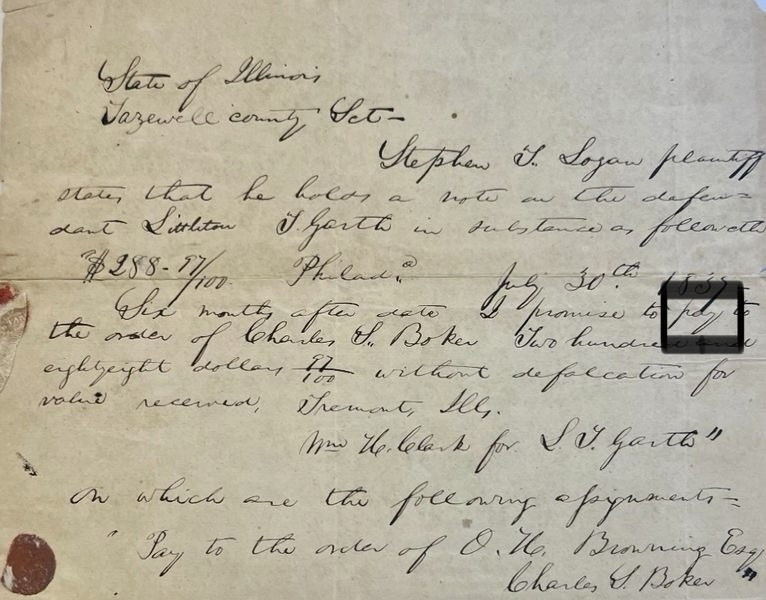 State of Illinois
Tazewell county Sct-
Stephen T. Logan plaintiff
states that he holds a note on the defen=
dant Littleton T. Garth in substance as followeth
"$288-97/100. Philada. July 30th
Six months after date I promise to pay to
the order of Charles S. Boker Two hundred and
eightyeight dollars 97/100 without defalcation for
value received, Tremont, Ills.
Wm H. Clark for L. T. Garth"
on which are the following assignments=
"Pay to the order of O. H. Browning Esq
Charles S. Boker "